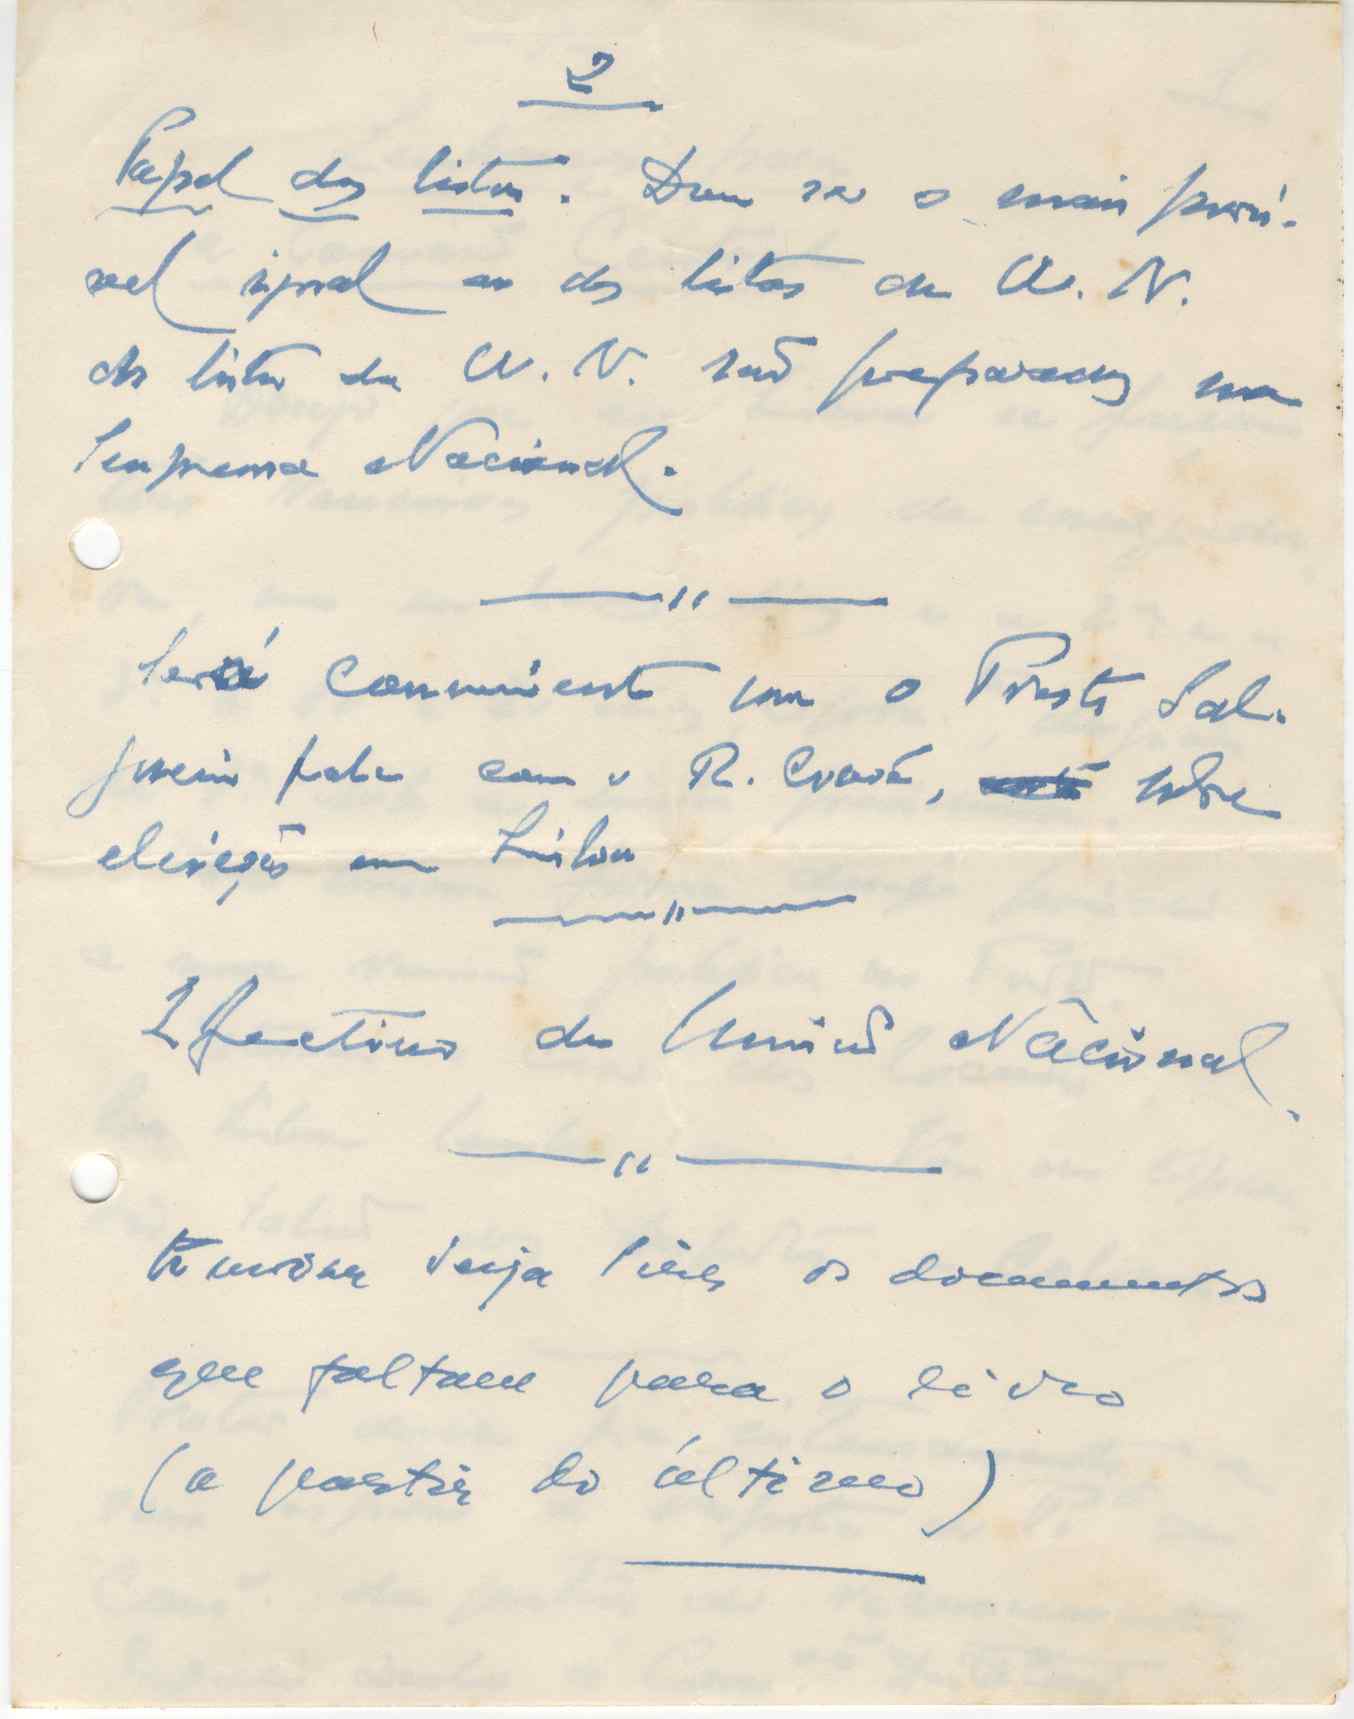 2
Papel das listas. Deve ser o mais possí-
vel igual ao das listas da U. N.
As listas da U. N. são preparadas na
Imprensa Nacional.
Será conveniente que o Prestes Sal-
gueiro fale com o R. , sobre
eleições em Lisboa
Efectivos da União Nacional.
veja os documentos
que faltam para o livro
(a partir do último)